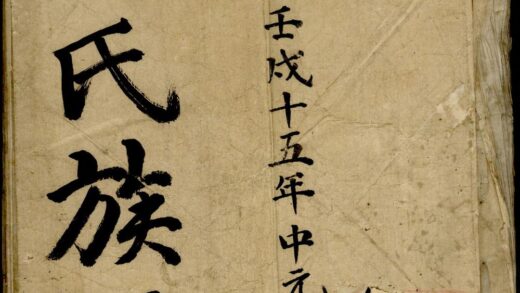 壬戌十五年中元
氏族